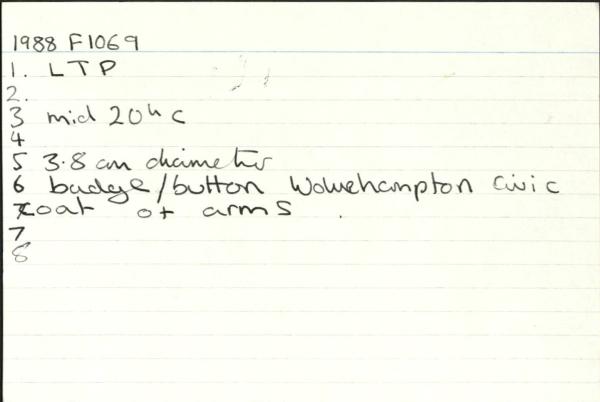 1988 F1069
1. LTP
2.
3 mid 20th c
4
5 3.8 cm diameter
6 badge/button Wolverhampton Civic
coat of arms
7
8